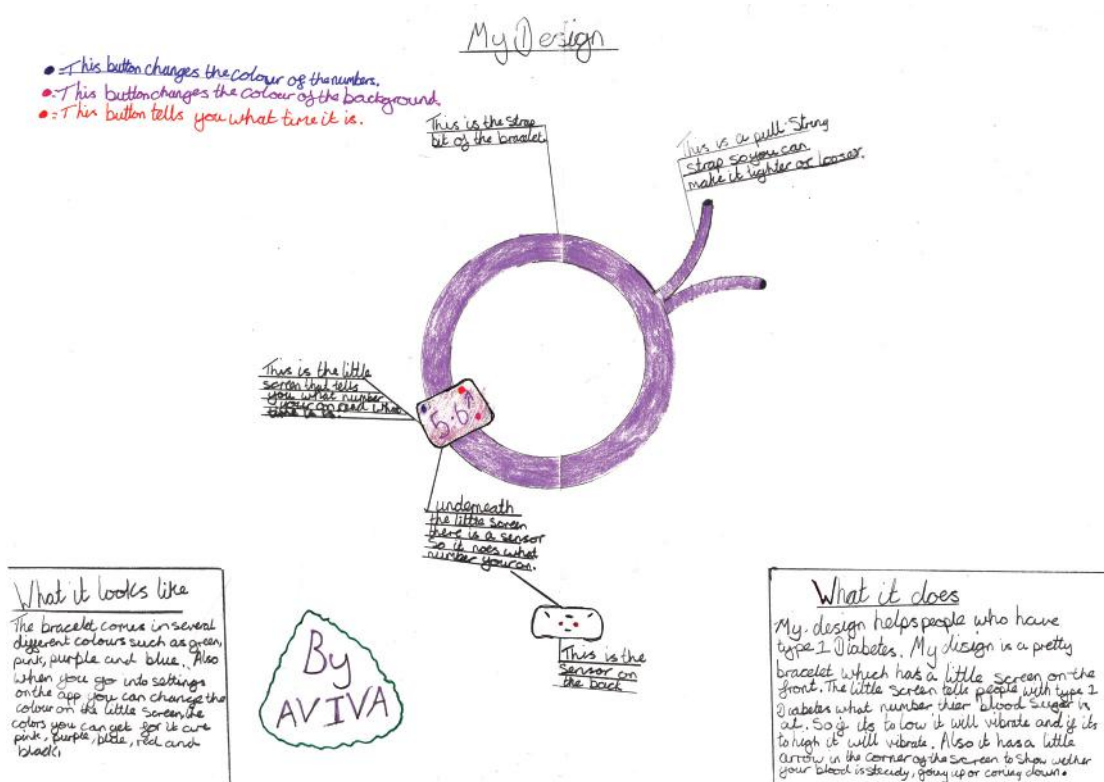 My Design
• = This button changes the colour of the numbers.
• = This button changes the colour of the background.
• = This button tells you what time it is.
This is the strap
bit of the bracelet.
This is a pull-String
strap so you can
make it tighter or looser.
This is the little
screen that tells
you what number
your on read what
time it is.
5.6↑
underneath
the little screen
there is a sensor
So it noes what
number your on.
This is the
sensor on
the back
What it looks like
The bracelet comes in several
different colours such as green,
pink, purple and blue. Also
when you go into settings
on the app you can change the
colour on the little screen, the
colors you can get for it are
pink, purple, blue, red and
black.
By
AVIVA
What it does
My design helps people who have
type 1 Diabetes. My disign is a pretty
bracelet which has a little screen on the
front. The little screen tells people with type 1
Diabetes what number thier blood sugar is
at. So if its to low it will vibrate and if its
to high it will vibrate. Also it has a little
arrow in the corner of the screen to show wether
your blood is steady, going up or coming down.